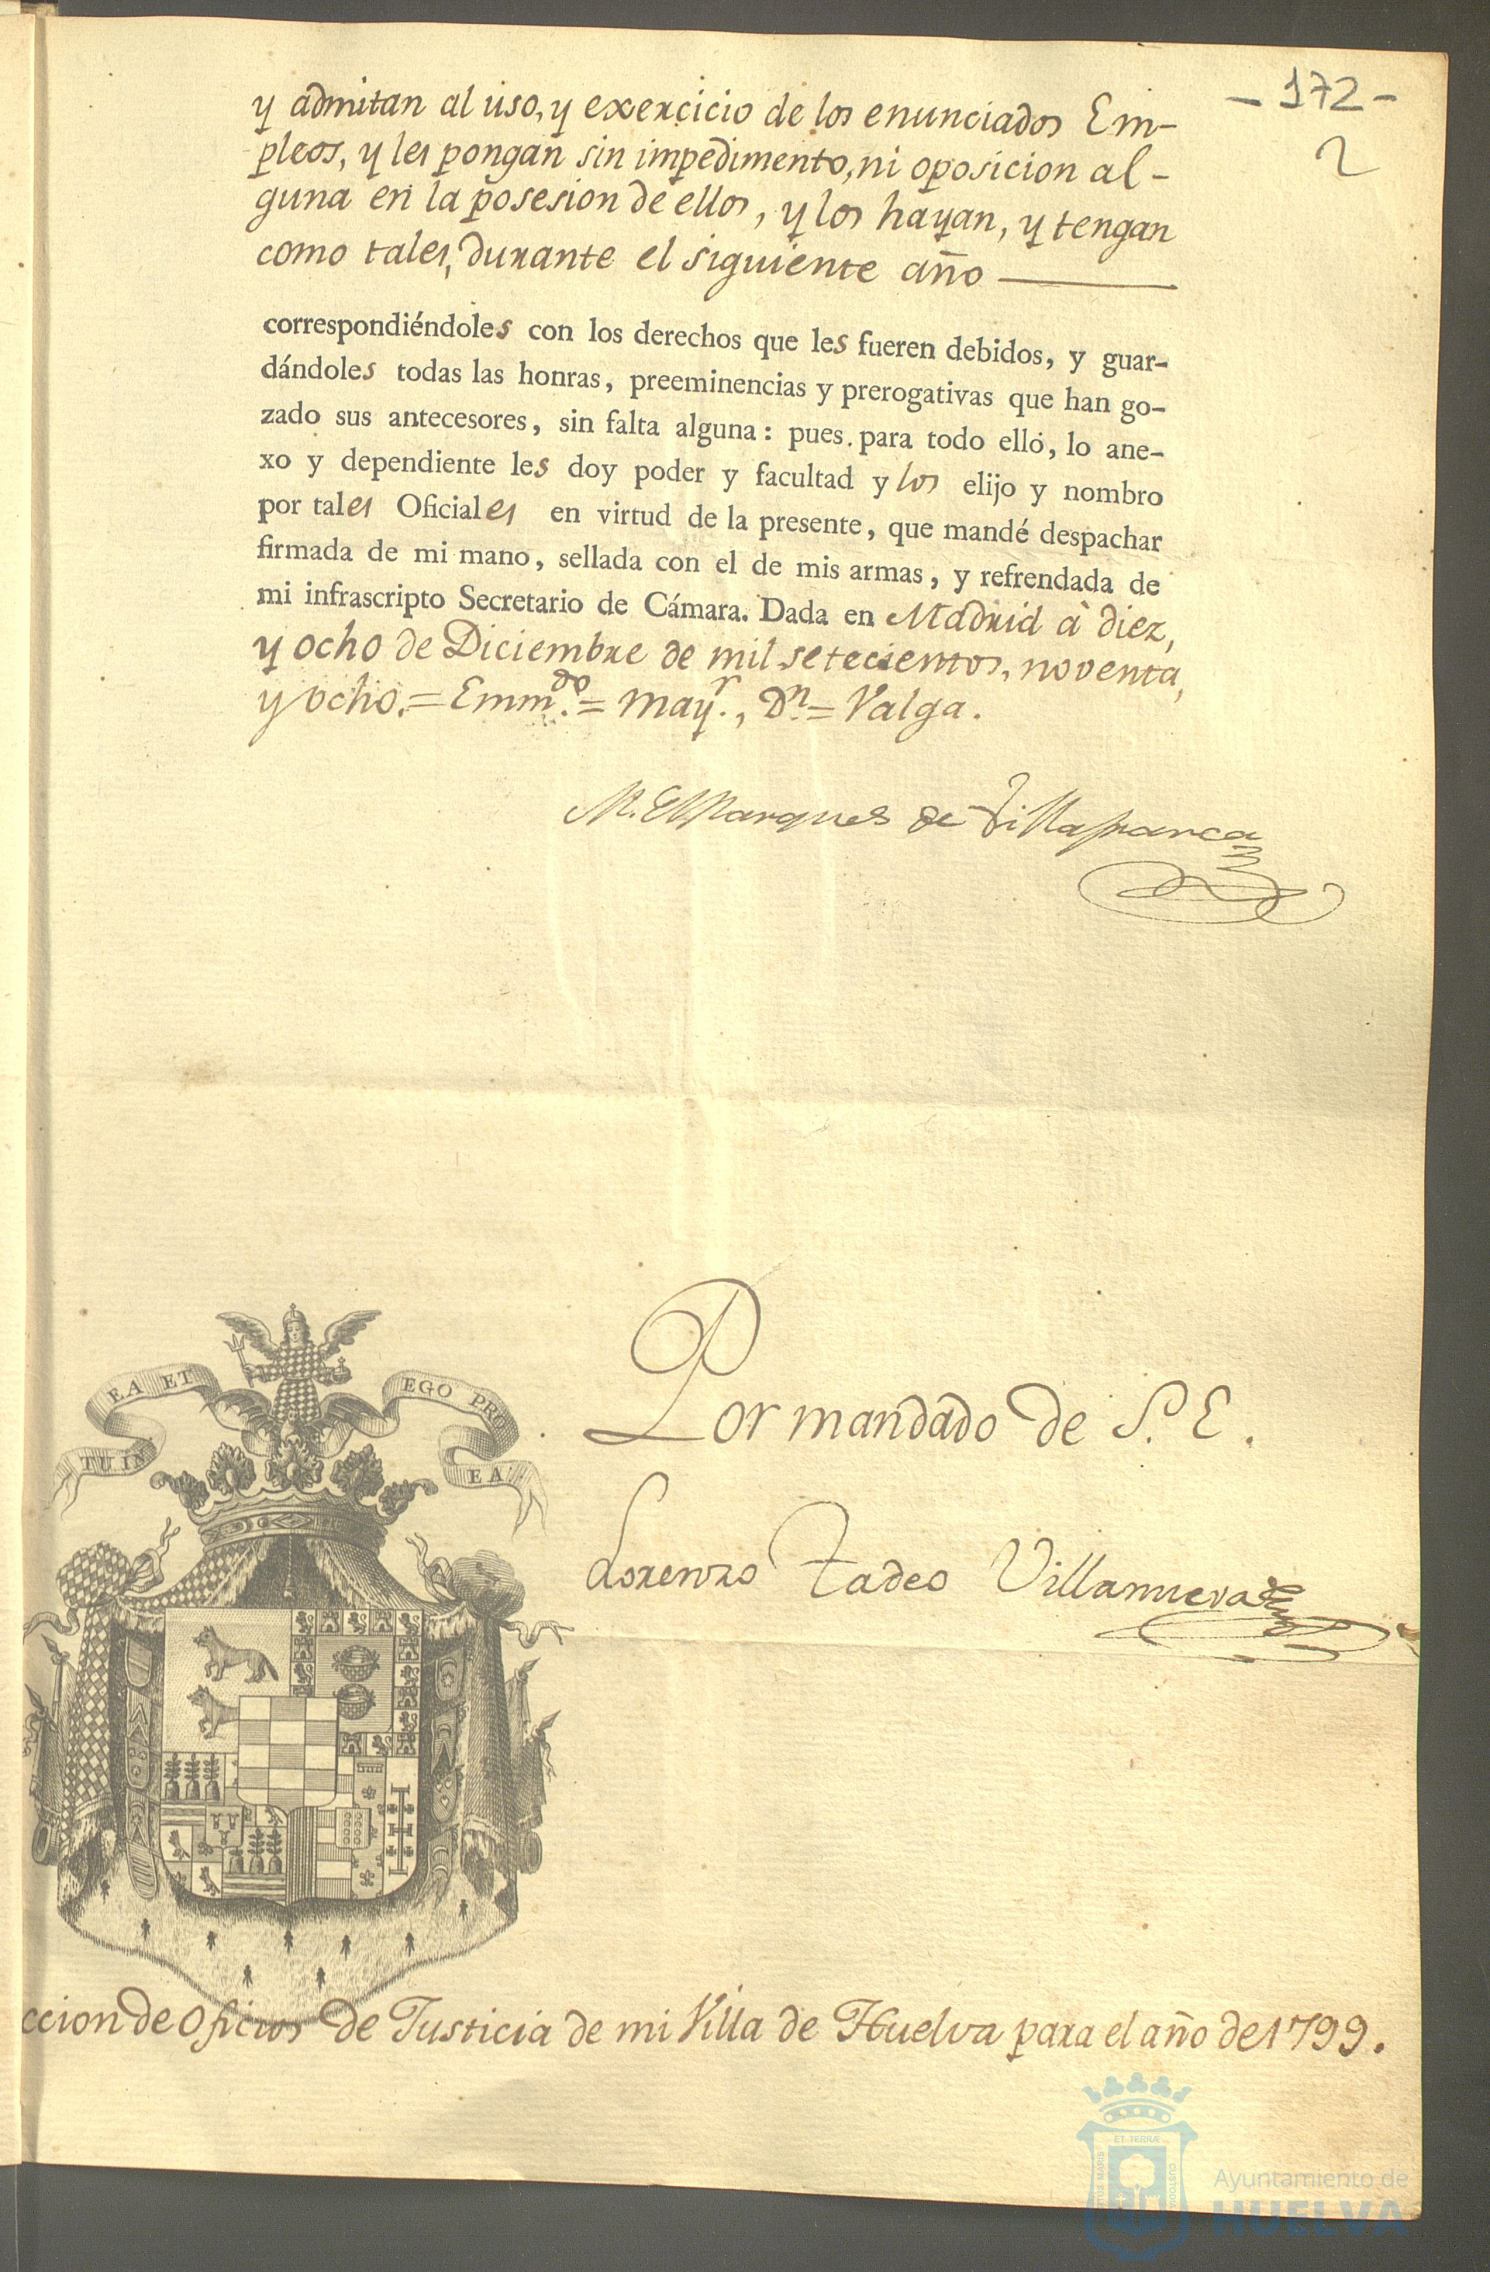 - 172 -
2
y admitan al uso, y exercicio de los enunciados Em-
pleos, y les pongan sin impedimento, ni oposicion al-
guna en la posesion de ellos, y los hayan, y tengan
como tales, durante el siguiente año
correspondiéndoles con los derechos que les fueren debidos, y guar-
dándoles todas las honras, preeminencias y prerogativas que han go-
zado sus antecesores, sin falta alguna: pues para todo ello, lo ane-
xo y dependiente les doy poder y facultad y los elijo y nombro
por tales Oficiales en virtud de la presente, que mandé despachar
firmada de mi mano, sellada con el de mis armas, y refrendada de
mi infrascripto Secretario de Cámara. Dada en Madrid à diez,
y ocho de Diciembre de mil setecientos, noventa,
y ocho. = Emm.do = may.r, D.n = Valga.
M. El Marques de Villafranca
EA ET EGO PRO
TU IN EA
Por mandado de S. E.
Lorenzo Tadeo Villanueva
ccion de Oficios de Justicia de mi Villa de Huelva para el año de 1799.
ET TERRÆ
PORTUS MARIS
CUSTODIA
Ayuntamiento de
HUELVA